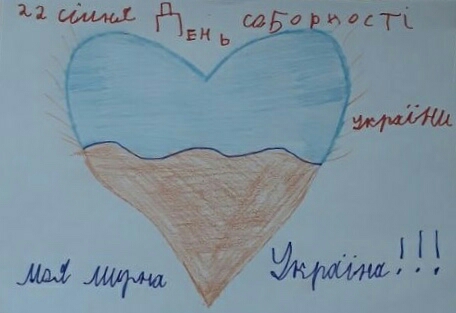 22 січня День соборності
україни
моя мирна Україна!!!